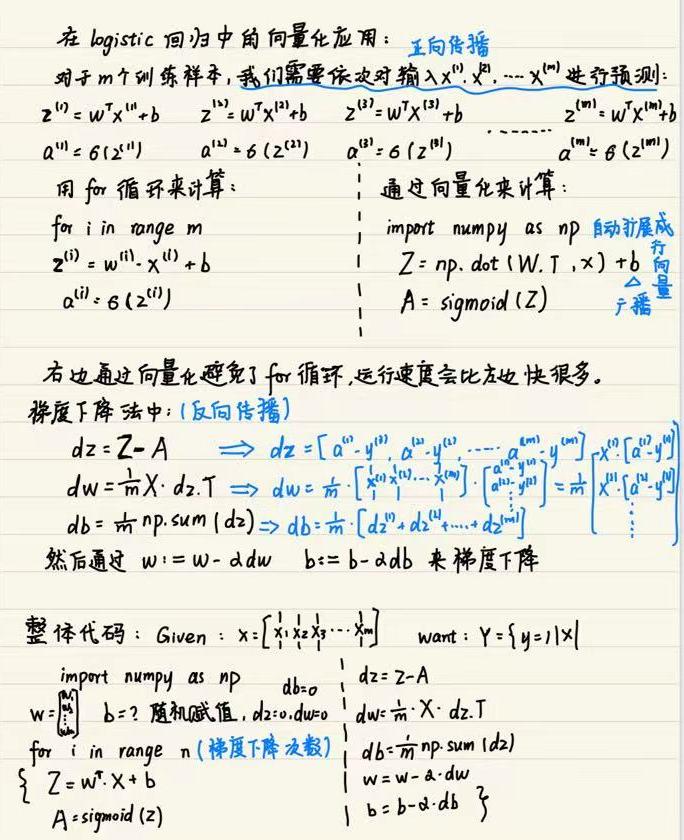 在 logistic 回归中的向量化应用: 正向传播
对于m个训练样本,我们需要依次对输入x⁽¹⁾, x⁽²⁾, ···· x⁽ᵐ⁾ 进行预测:
z⁽¹⁾ = wᵀx⁽¹⁾+b z⁽²⁾= wᵀx⁽²⁾+b z⁽³⁾= wᵀx⁽³⁾+b ------ z⁽ᵐ⁾= wᵀx⁽ᵐ⁾+b
a⁽¹⁾ = 6(z⁽¹⁾) a⁽²⁾ = 6(z⁽²⁾) a⁽³⁾ = 6(z⁽³⁾) a⁽ᵐ⁾= 6(z⁽ᵐ⁾)
用 for 循环来计算:
for i in range m
z⁽ⁱ⁾ = w⁽ⁱ⁾· x⁽ⁱ⁾ + b
a⁽ⁱ⁾ = 6(z⁽ⁱ⁾)
通过向量化来计算:
import numpy as np
Z = np. dot (W. T , x) + b
自动扩展成行向量
△
广播
A = sigmoid (Z)
右边通过向量化避免了 for 循环,运行速度会比左边快很多。
梯度下降法中: (反向传播)
dz = Z - A ⇒ dz = [a⁽¹⁾-y⁽³⁾, a⁽²⁾-y⁽²⁾, ····· a⁽ᵐ⁾-y⁽ᵐ⁾]
dw = 1/m X · dz. T ⇒ dw = 1/m · [x⁽¹⁾ x⁽²⁾ ··· x⁽ᵐ⁾] · [a⁽¹⁾-y⁽¹⁾ a⁽²⁾-y⁽²⁾ ⋮] = 1/m [x⁽¹⁾·[a⁽¹⁾-y⁽¹⁾] x⁽²⁾·[a⁽²⁾-y⁽²⁾] ⋮]
db = 1/m np. sum (dz) ⇒ db = 1/m · [dz⁽¹⁾ + dz⁽²⁾ + ···· + dz⁽ᵐ⁾]
然后通过 w := w - αdw b := b - αdb 来梯度下降
整体代码: Given : X = [x₁ x₂ x₃ ··· xₘ] want : Y = {y=1|x|
import numpy as np
db=0
w = [w₁ w₂ ⋮ wₘ] b = ? 随机赋值, dz=0, dw=0
for i in range n (梯度下降次数)
{ Z = wᵀ· X + b
A = sigmoid (z)
dz = Z - A
dw = 1/m · X · dz. T
db = 1/m np. sum (dz)
w = w - α · dw
b = b - α · db }